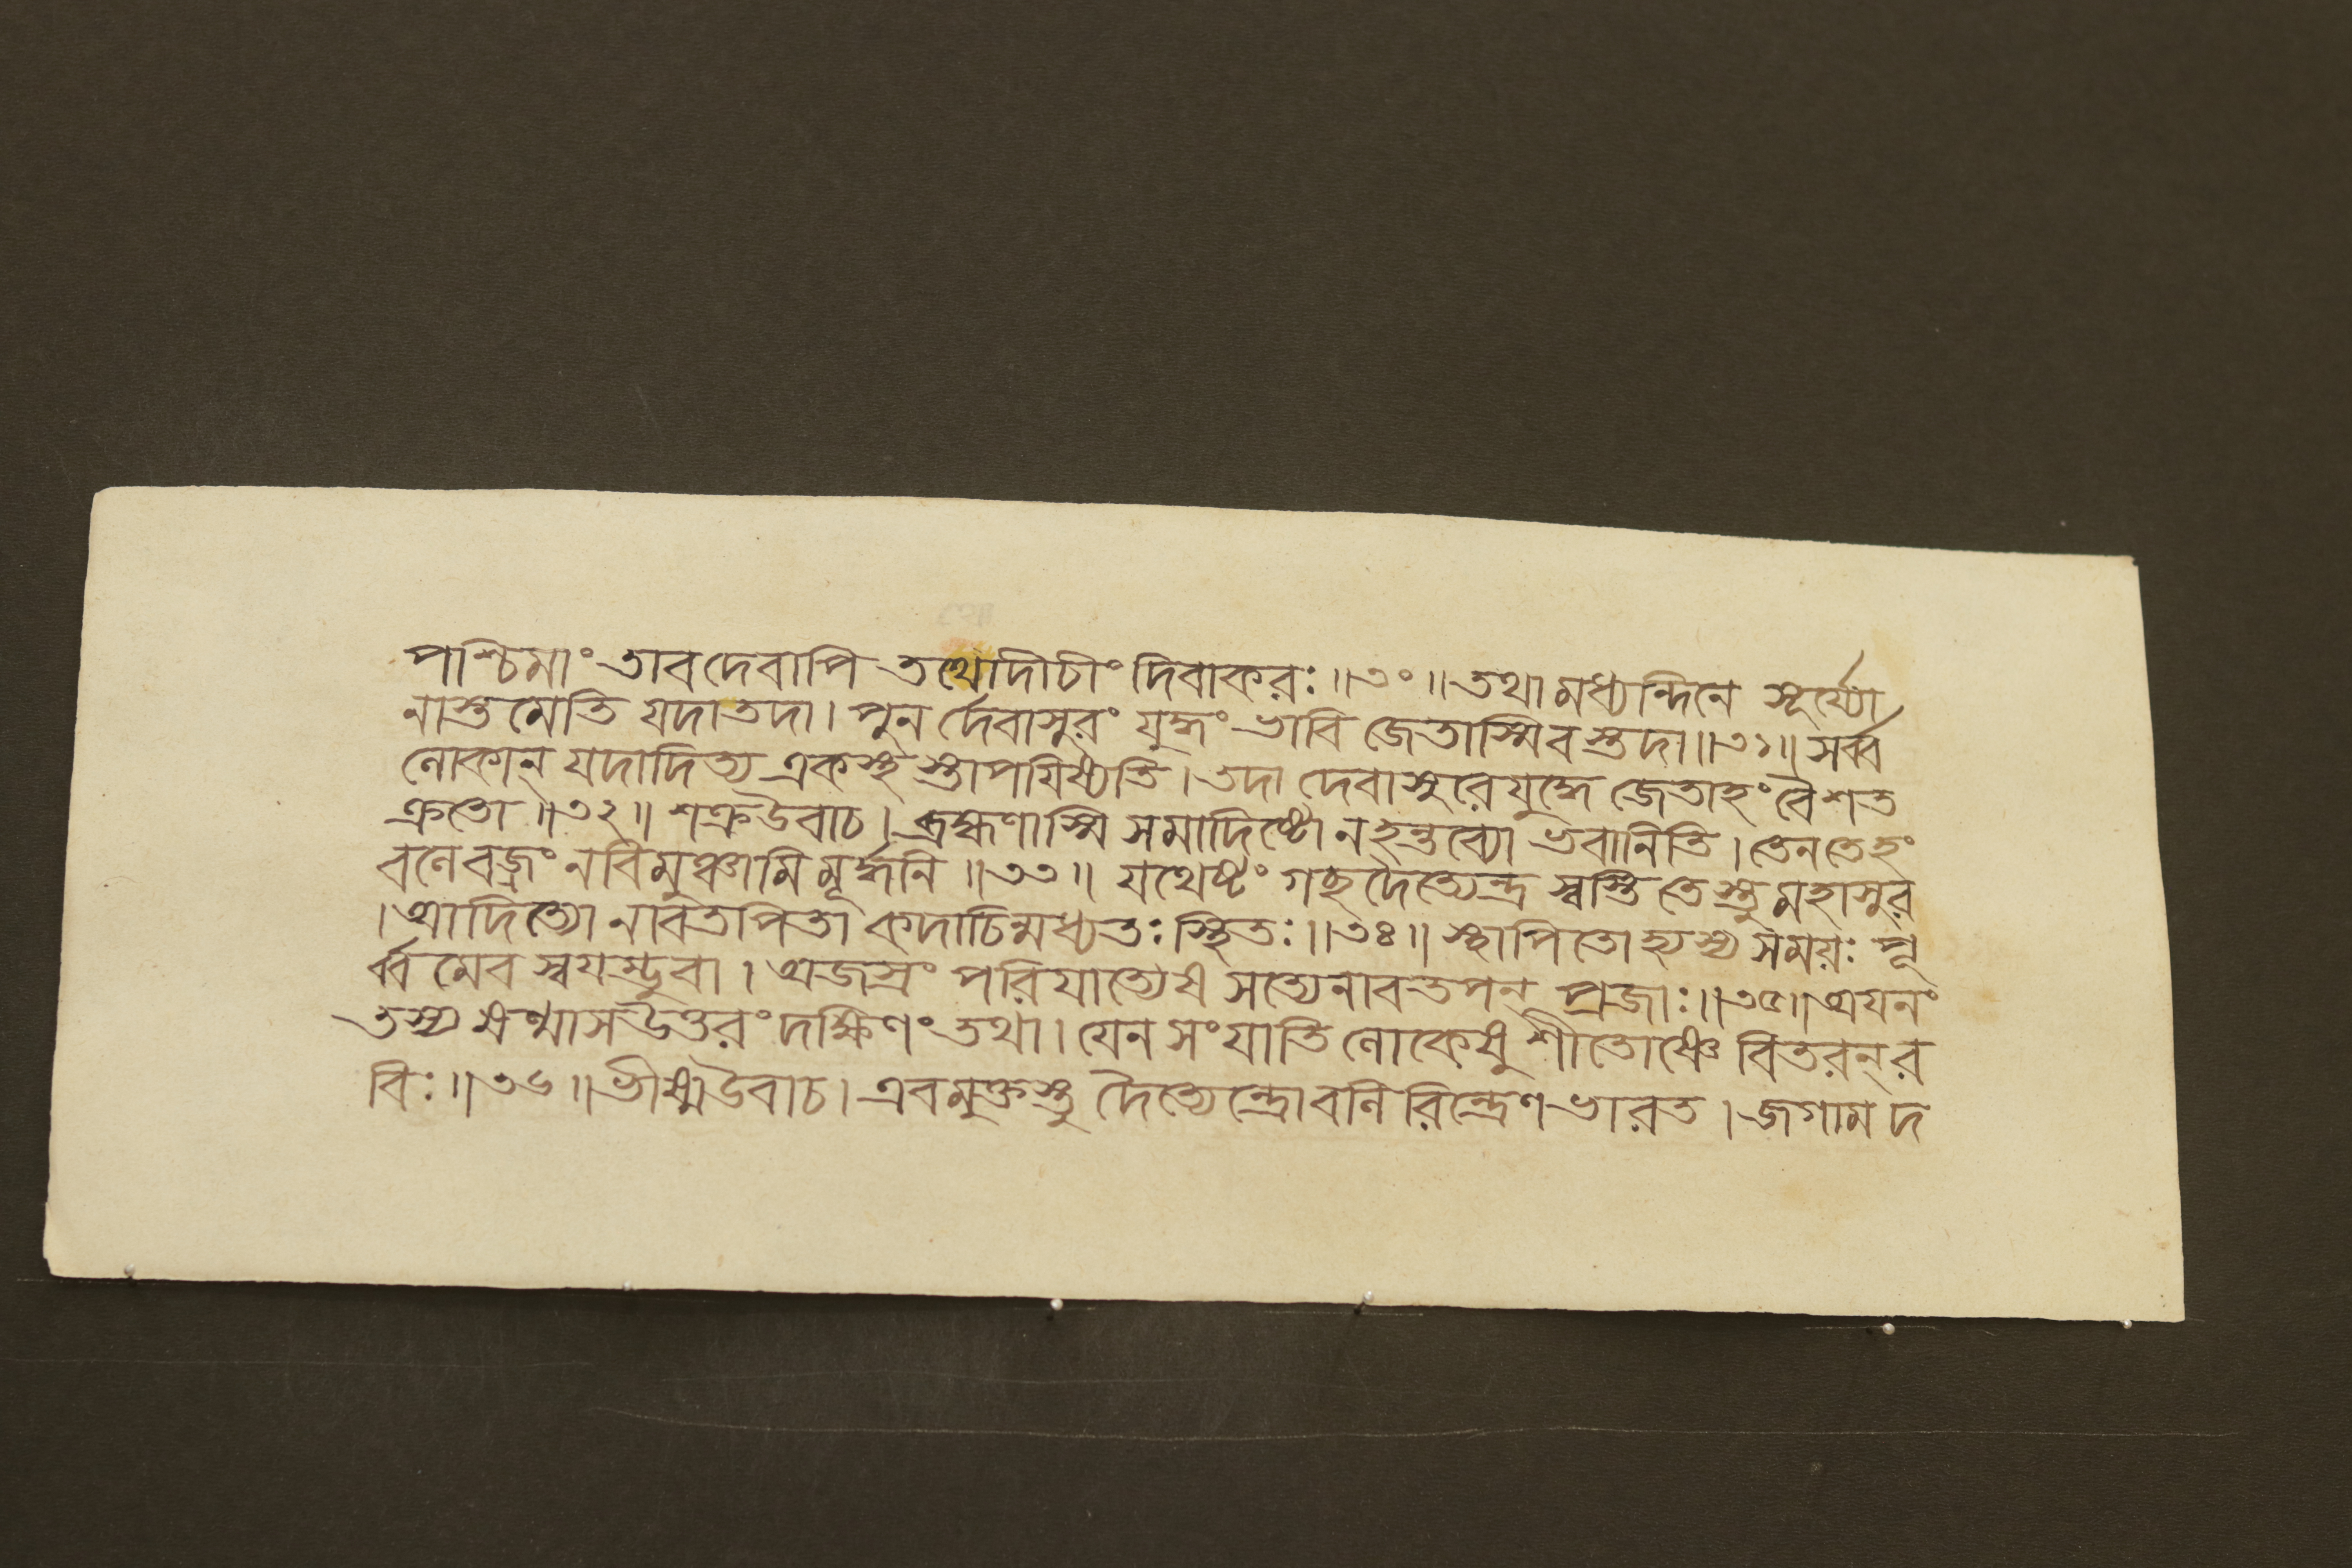 পশ্চিমাং তাবদেবাপি তথোদীচীং দিবাকরঃ ॥৩০॥ তথা মধ্যন্দিনে সূর্য্যো
নাস্তমেতি যদা তদা। পুনর্দেবাসুরং যুদ্ধং ভাবি জেতাস্মি বস্তদা ॥৩১॥ সর্ব্ব
লোকান্ যদাদিত্য একস্থ স্তাপয়িষ্যতি। তদা দেবাসুরে যুদ্ধে জেতাহং বৈ শত
ক্রতো ॥৩২॥ শক্রউবাচ। ব্রহ্মণাস্মি সমাদিষ্টো ন হন্তব্যো ভবানিতি। তেন তেহং
বলে বজ্রং ন বিমুঞ্চামি মূর্দ্ধনি ॥৩৩॥ যথেষ্টং গচ্ছ দৈত্যেন্দ্র স্বস্তি তেস্তু মহাসুর
। আদিত্যো নাবতপিতা কদাচিন্মধ্যতঃ স্থিতঃ ॥৩৪॥ স্থাপিতোহ্যস্য সময়ঃ পূ
র্ব্বমেব স্বয়ম্ভুবা। অজস্রং পরিযাত্যেষ সত্যেনাবতপন্ প্রজাঃ ॥৩৫॥ অয়নং
তস্য ষণ্মাস উত্তরং দক্ষিণং তথা। যেন সংযাতি লোকেষু শীতোষ্ণে বিতরন্ র
বিঃ ॥৩৬॥ ভীষ্মউবাচ। এবমুক্তস্তু দৈত্যেন্দ্রো বলিরিন্দ্রেণ ভারত। জগাম দ